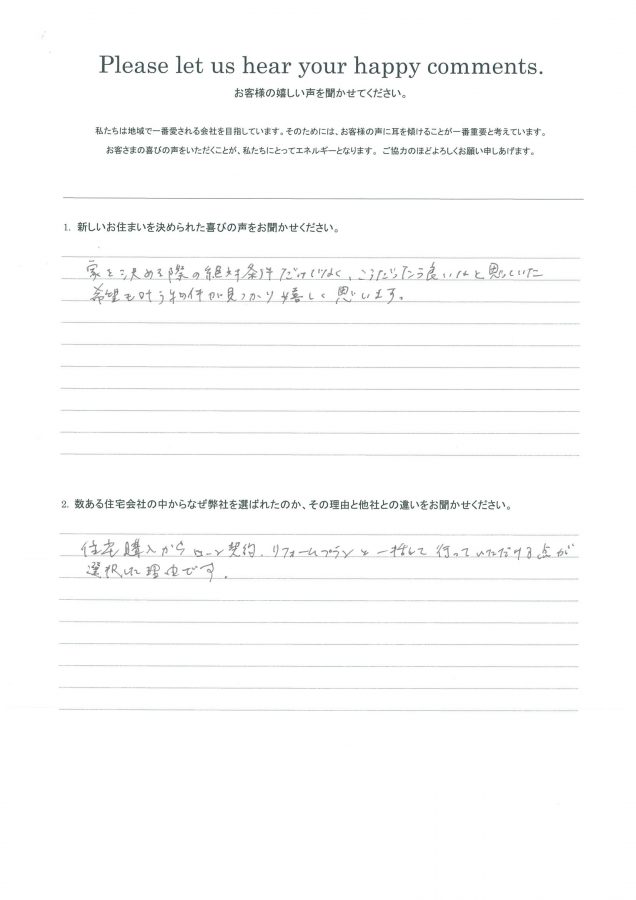 Please let us hear your happy comments.
お客様の嬉しい声を聞かせてください。
私たちは地域で一番愛される会社を目指しています。そのためには、お客様の声に耳を傾けることが一番重要と考えています。
お客さまの喜びの声をいただくことが、私たちにとってエネルギーとなります。ご協力のほどよろしくお願い申しあげます。
1. 新しいお住まいを決められた喜びの声をお聞かせください。
家を決める際の絶対条件だけでなく、こうだったら良いなと思っていた
希望も叶う物件が見つかり嬉しく思います。
2. 数ある住宅会社の中からなぜ弊社を選ばれたのか、その理由と他社との違いをお聞かせください。
住宅購入からローン契約、リフォームプランと一括して行っていただける点が
選択した理由です。